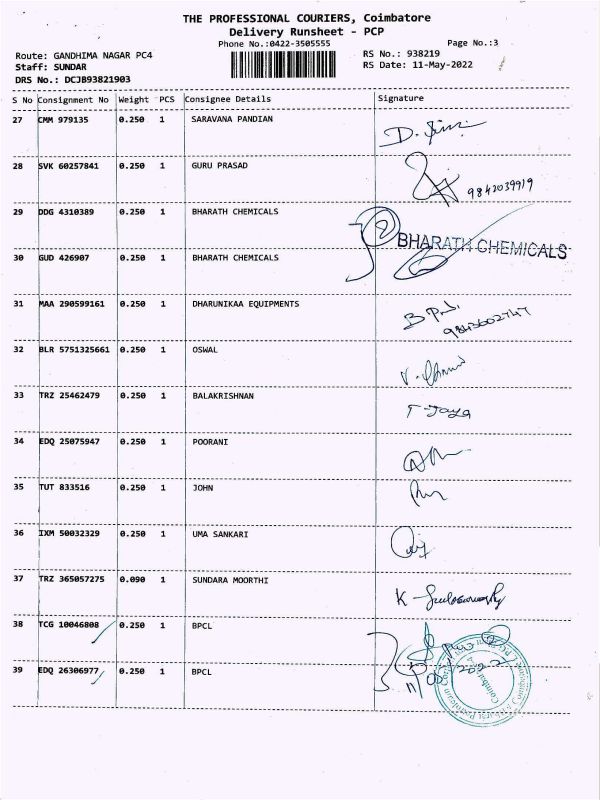 THE PROFESSIONAL COURIERS, Coimbatore
Delivery Runsheet - PCP
Phone No.:0422-3505555
Page No.:3
Route: GANDHIMA NAGAR PC4
RS No.: 938219
Staff: SUNDAR
RS Date: 11-May-2022
DRS No.: DCJB93821903
S No Consignment No Weight PCS Consignee Details Signature
27 CMM 979135 0.250 1 SARAVANA PANDIAN
28 SVK 60257841 0.250 1 GURU PRASAD
9842039919
29 DDG 4310389 0.250 1 BHARATH CHEMICALS
BHARATH CHEMICALS
30 GUD 426907 0.250 1 BHARATH CHEMICALS
31 MAA 290599161 0.250 1 DHARUNIKAA EQUIPMENTS
9843602747
32 BLR 5751325661 0.250 1 OSWAL
33 TRZ 25462479 0.250 1 BALAKRISHNAN
T-Jaya
34 EDQ 25075947 0.250 1 POORANI
35 TUT 833516 0.250 1 JOHN
36 IXM 50032329 0.250 1 UMA SANKARI
37 TRZ 365057275 0.090 1 SUNDARA MOORTHI
38 TCG 10046808 0.250 1 BPCL
39 EDQ 26306977 0.250 1 BPCL